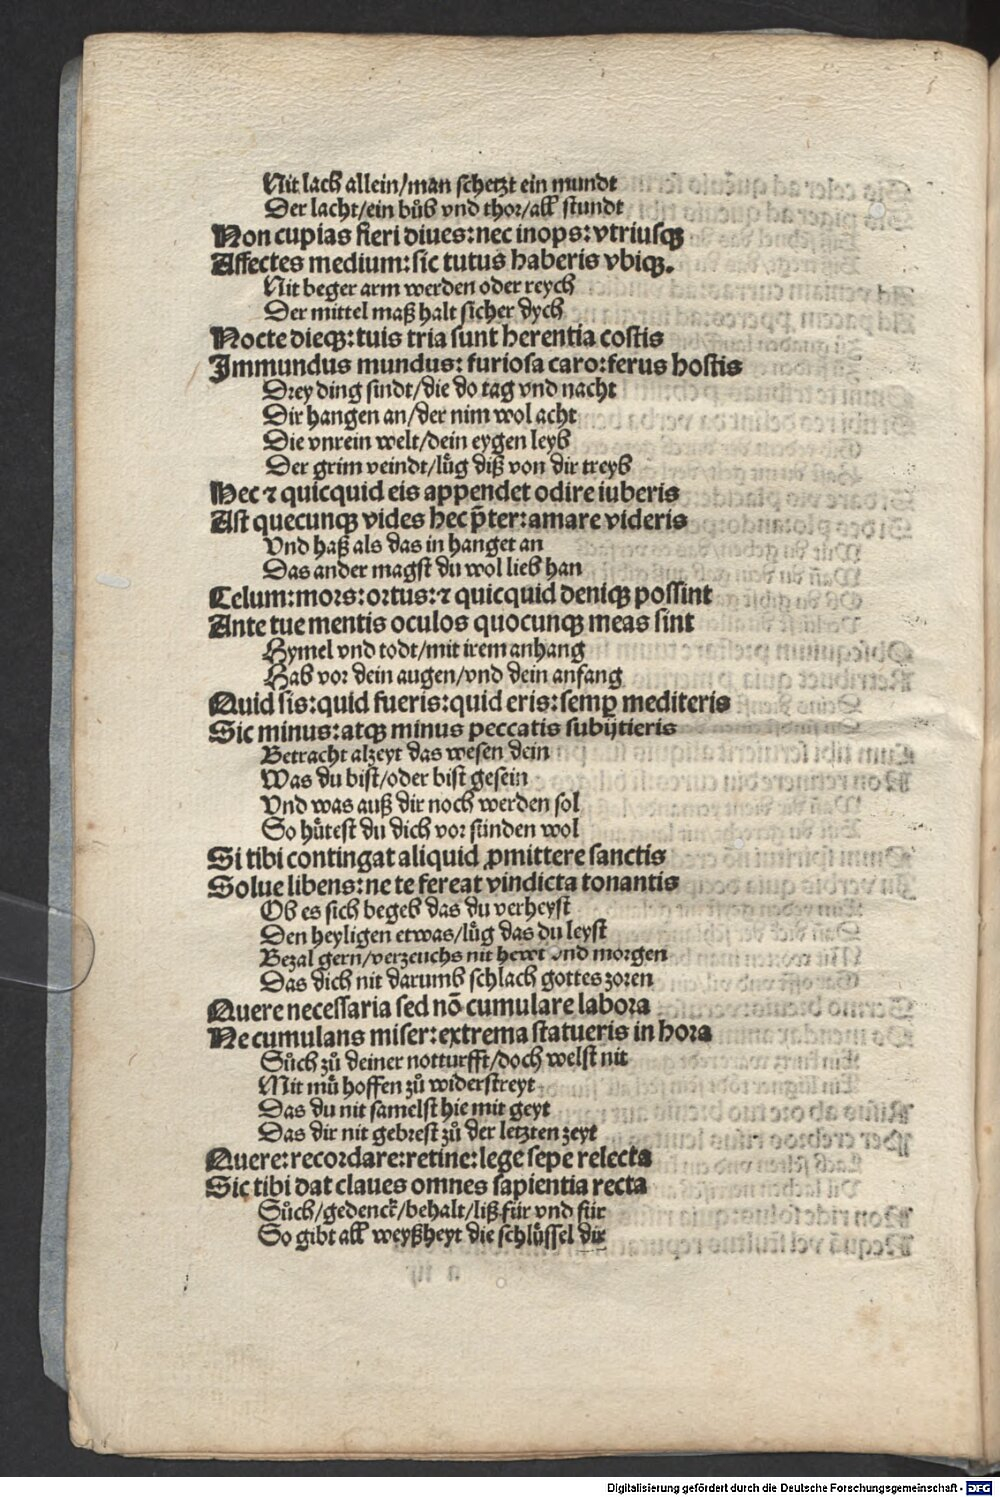 Nit lach allein/man schetzt ein mundt
Der lacht/ein bůb vnd thor/all stundt
Non cupias fieri diues:nec inops:vtriusqꝫ
Affectes medium:sic tutus haberis vbiqꝫ.
Nit beger arm werden oder reych
Der mittel maß halt sicher dych
Nocte dieqꝫ:tuis tria sunt herentia costis
Immundus mundus:furiosa caro:ferus hostis
Drey ding sindt/die do tag vnd nacht
Dir hangen an/der nim wol acht
Die vnrein welt/dein eygen leyb
Der grim veindt/lůg diß von dir treyb
Hec ⁊ quicquid eis appendet odire iuberis
Ast quecunqꝫ vides hec p̄ter:amare videris
Vnd haß als das in hanget an
Das ander magst du wol lieb han
Celum:mors:ortus:⁊ quicquid deniqꝫ possint
Ante tue mentis oculos quocunqꝫ meas sint
Hymel vnd todt/mit irem anhang
Hab vor dein augen/vnd dein anfang
Quid sis:quid fueris:quid eris:semꝑ mediteris
Sic minus:atqꝫ minus peccatis subijtieris
Betracht alzeyt das wesen dein
Was du bist/oder bist gesein
Vnd was auß dir noch werden sol
So hůtest du dich vor sünden wol
Si tibi contingat aliquid ꝓmittere sanctis
Solue libens:ne te fereat vindicta tonantis
Ob es sich begeb das du verheyst
Den heyligen etwas/lůg das du leyst
Bezal gern/verzeuchs nit hewt vnd morgen
Das dich nit darumb schlach gottes zoren
Quere necessaria sed nō cumulare labora
Ne cumulans miser:extrema statueris in hora
Sůch zů deiner notturfft/doch welst nit
Mit mů hoffen zů widerstreyt
Das du nit samelst hie mit geyt
Das dir nit gebrest zů der letzten zeyt
Quere:recordare:retine:lege sepe relecta
Sic tibi dat claues omnes sapientia recta
Sůch/gedenck/behalt/liß für vnd für
So gibt all weyßheyt die schlüssel dir
Digitalisierung gefördert durch die Deutsche Forschungsgemeinschaft - DFG